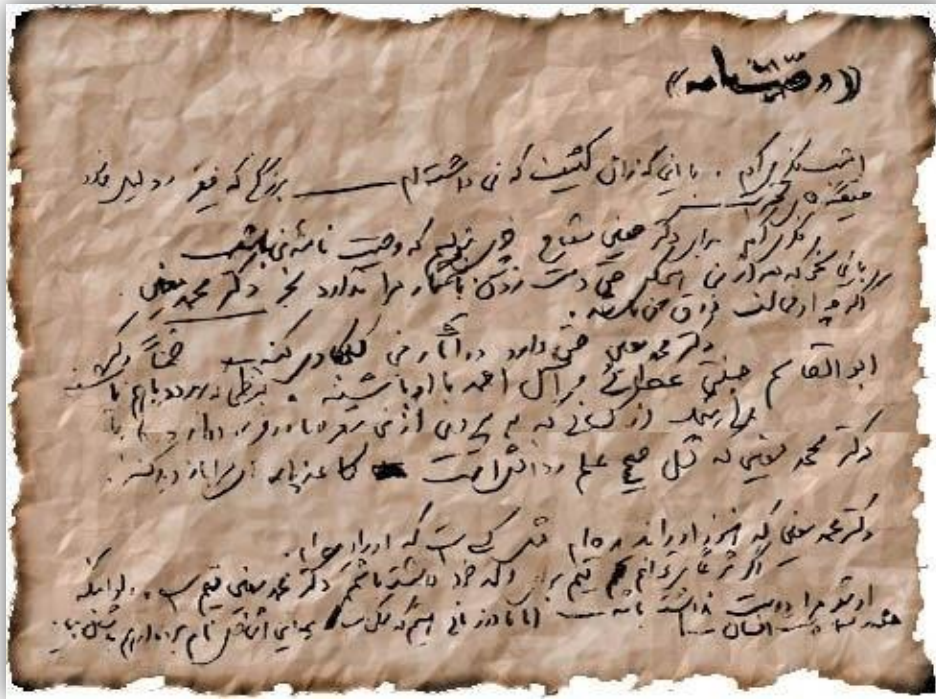 ((وصیت نامه))
امشب فکر می کردم . با این گذران کثیف که من داشته ام — بزرگی که فقیر و ذلیل می شود
حقیقةً جای تحسر است
فکر می کردم برای دکتر حسین مفتاح چیزی بنویسم که وصیت نامه من باشد
باین نحو که بعد از من هیچکس حق دست زدن به آثار مرا ندارد بجز دکتر محمد معین
اگر چه او مخالف ذوق من باشد .
دکتر محمد معین حق دارد در آثار من کنجکاوی کند ضمناً دکتر
ابوالقاسم جنتی عطائی و آل احمد با او باشند . بشرطی که هر دو با هم باشند
هیچیک از کسانی که به پیروی از من شعر صادر
دکتر محمد معین که مثل صحیح علم و دانش است کاغذ پاره های مرا بازدید کند .
دکتر محمد معین که هنوز او را ندیده ام مثل کسی است که او را
اگر شرعاً میتوانم قیم برای ولد خود داشته باشم دکتر محمد معین قیم است . ولو اینکه
او شعر مرا دوست نداشته باشد اما ما در زمانی هستیم که ممکن است همه این اشخاص نام برده از هم بدشان بیاید .
چقدر بیچاره است انسان